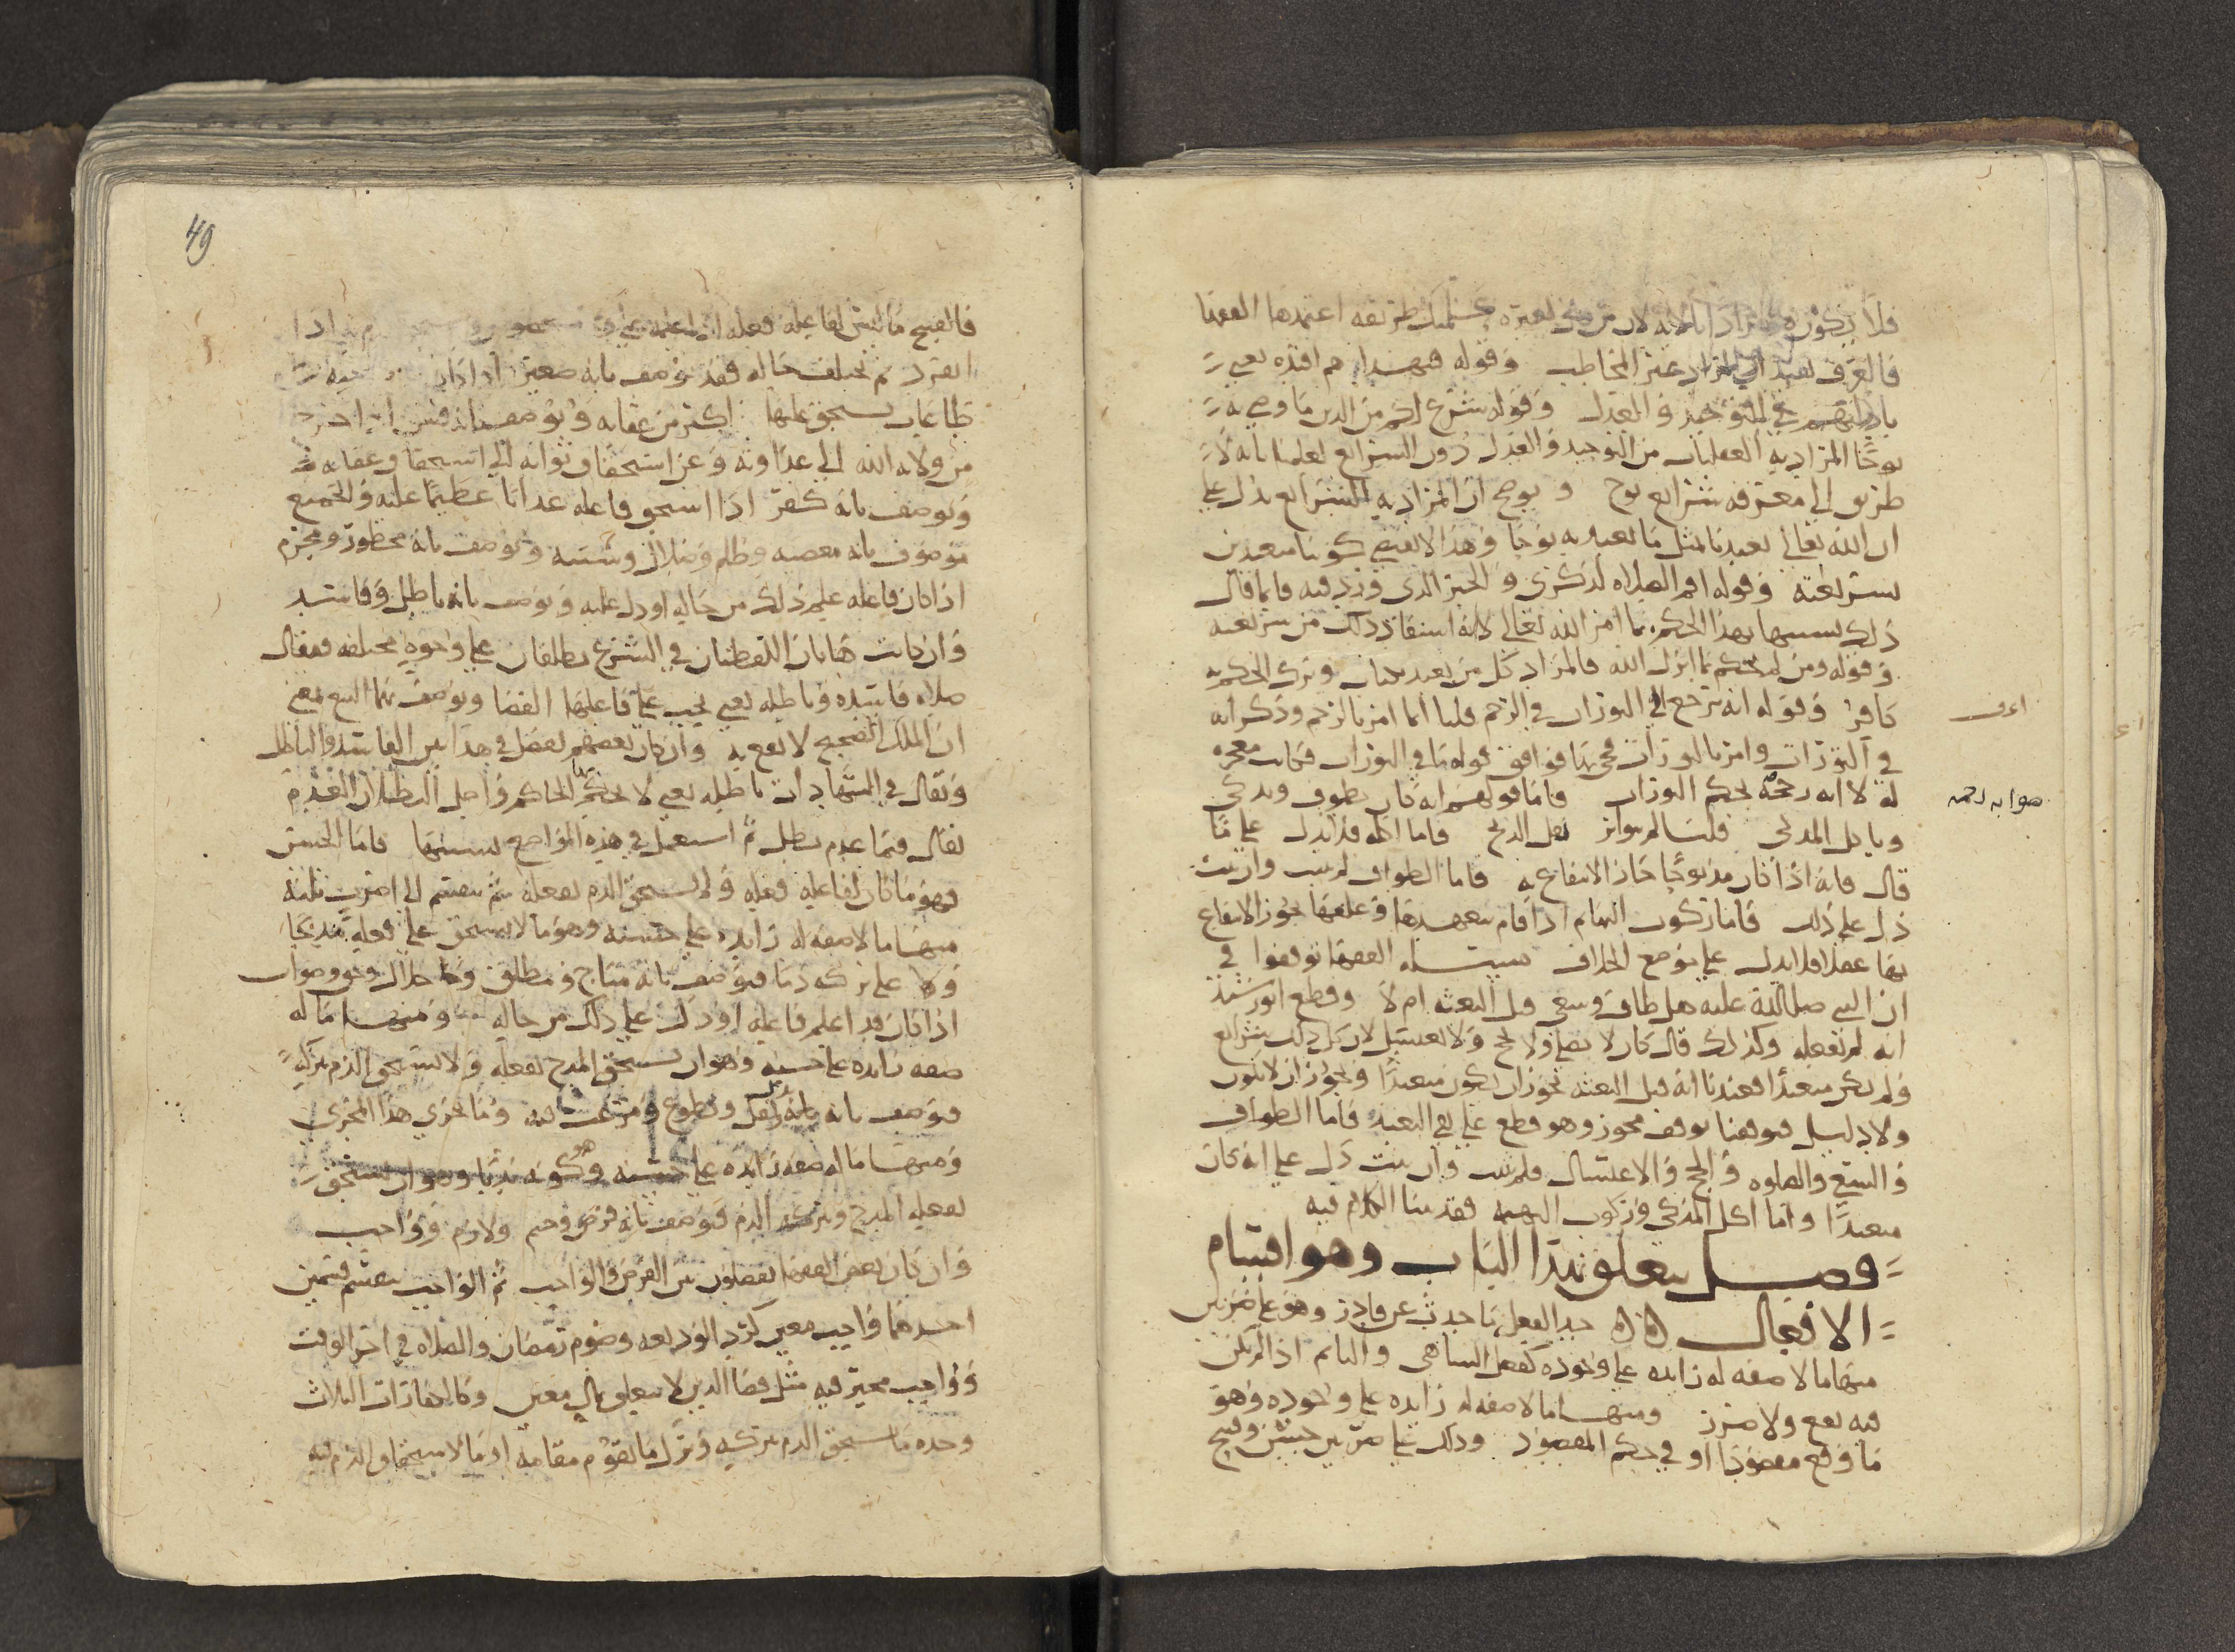 فلا يكون مرادا بالآية لان من طريقه اعتمدها الفقها
فالعرف يفيد ان المراد غير المخاطب وقوله فبهداهم اقتده يعني
بادلتهم في التوحيد والعدل وقوله شرع لكم من الدين ما وصى به
نوحا المراد به العقليات من التوحيد والعدل دون الشرايع لعلمنا بانه لا
طريق الى معرفه شرايع نوح ويوضح ان المراد به الشرايع يدل على
ان الله تعالى تعبدنا بمثل ما تعبد به نوحا وهذا لا يقتضي كوننا متعبدين
بشريعته وقوله اقم الصلاه لذكري والخبر الذي ورد فيه فانما قال
ذلك تشبيها بهذا الحكم بما امر الله تعالى لانه استفاد ذلك من شريعته
وقوله ومن لم يحكم بما انزل الله فالمراد كل من تعبد بكتاب وترك الحكم به
كافر وقوله انه ترجع الى التوراه في الرجم قلنا انما امر بالرجم وذكر انه
اعرف
في التورات وامر بالتورات فجي بها فوافق قوله ما في التوراه فكانت معجزه
له لا انه رجمه بحكم التوراه فاما قولهم انه كان يطوف ويذكي
صوابه رجمه
وياكل المذكى قلنا لم يتواتر نقل الذبح فاما اكله فلا يدل على ما
قال فانه اذا كان مذبوحا جاز الانتفاع به فاما الطواف لم يثبت وان ثبت
دل على ذلك فاما ركوب البهائم اذا قام بتعهدها وعلفها يجوز الانتفاع
بها عقلا فلا يدل على موضع الخلاف مسئله الفقها توقفوا في
ان النبي صلى الله عليه هل طاف وسعى قبل البعثه ام لا وقطع ابو رشيد
انه لم يفعله وكذلك قال كان لا يصلي ولا يحج ولا يغتسل لان كل ذلك شرايع
ولم يكن متعبدا فعندنا انه قبل البعثه نجوز ان يكون متعبدا ونجوز ان لا يكون
ولا دليل فتوقفنا توقف مجوز وهو قطع على نفي التعبد فاما الطواف
والسعي والصلوه والحج والاغتسال فلم يثبت وان ثبت دل على انه كان
متعبدا واما اكل المذكى وركوب البهيمه فقد بينا الكلام فيه
فصل يتعلق بهذا الباب وهو اقسام
الافعال حد الفعل ما حدث عن قادر وهو على ضربين
منها ما لا صفه له زايده على وجوده كفعل الساهي والنايم اذا لم يكن
فيه نفع ولا ضرر ومنها ما لا صفه له زايده على وجوده وهو
ما وقع مقصودا او في حكم المقصود وذلك على ضربين حسن وقبيح
49
فالقبيح ما ليس لفاعله فعله اذا
انفرد ثم تختلف حاله فقد يوصف بانه صغير اذا كان
طاعات يستحق عليها اكثر من عقابه ويوصف بانه فسق اذا اخرج
من ولايه الله الى عداوته وعن استحقاق ثوابه الى استحقاق عقابه
ويوصف بانه كفر اذا استحق فاعله عذابا عظيما عليه والجميع
موصوف بانه معصيه وظلم وضلال وسيئه ويوصف بانه محظور ومحرم
اذا كان فاعله علم ذلك من حاله او دل عليه ويوصف بانه باطل وفاسد
وان كانت هاتان اللفظتان في الشرع يطلقان على وجوه مختلفه فيقال
صلاه فاسده وباطله يعني يجب على فاعلها القضا ويوصف بهما البيع بمعنى
ان الملك الصحيح لا يقع به وان كان بعضهم يفصل في هذا بين الفاسد والباطل
ويقال في الشهادات باطله يعني لا يحكم بها الحاكم واصل البطلان العدم
يقال فيما عدم بطل ثم استعمل في هذه المواضع تشبيها فاما الحسن
فهو ما كان لفاعله فعله ولا يستحق الذم بفعله ثم ينقسم الى اضرب ثلثه
منها ما لا صفه له زايده على حسنه وهو ما لا يستحق على فعله مدحا
ولا على تركه ذما فيوصف بانه مباح ومطلق وحلال وحق وصواب
اذا كان قد اعلم فاعله او دل على ذلك من حاله ومنها ما له
صفه زايده على حسنه وهو ان يستحق المدح بفعله ولا يستحق الذم بتركه
فيوصف بانه ندب ونفل وتطوع ومرغب فيه وما يجري هذا المجرى
ومنها ما له صفه زايده على حسنه وهو كونه ندبا وهو ان يستحق
بفعله المدح وبتركه الذم فيوصف بانه فرض وحتم ولازم وواجب
وان كان بعض الفقها يفصلون بين الفرض والواجب ثم الواجب ينقسم قسمين
احدهما واجب معين كرد الوديعه وصوم رمضان والصلاه في اخر الوقت
وواجب مخير فيه مثل قضا الدين لا يتعلق بمال معين وكالكفارات الثلاث
وحده ما يستحق الذم بتركه وترك ما يقوم مقامه او ما لاستحقاق الذم فيه